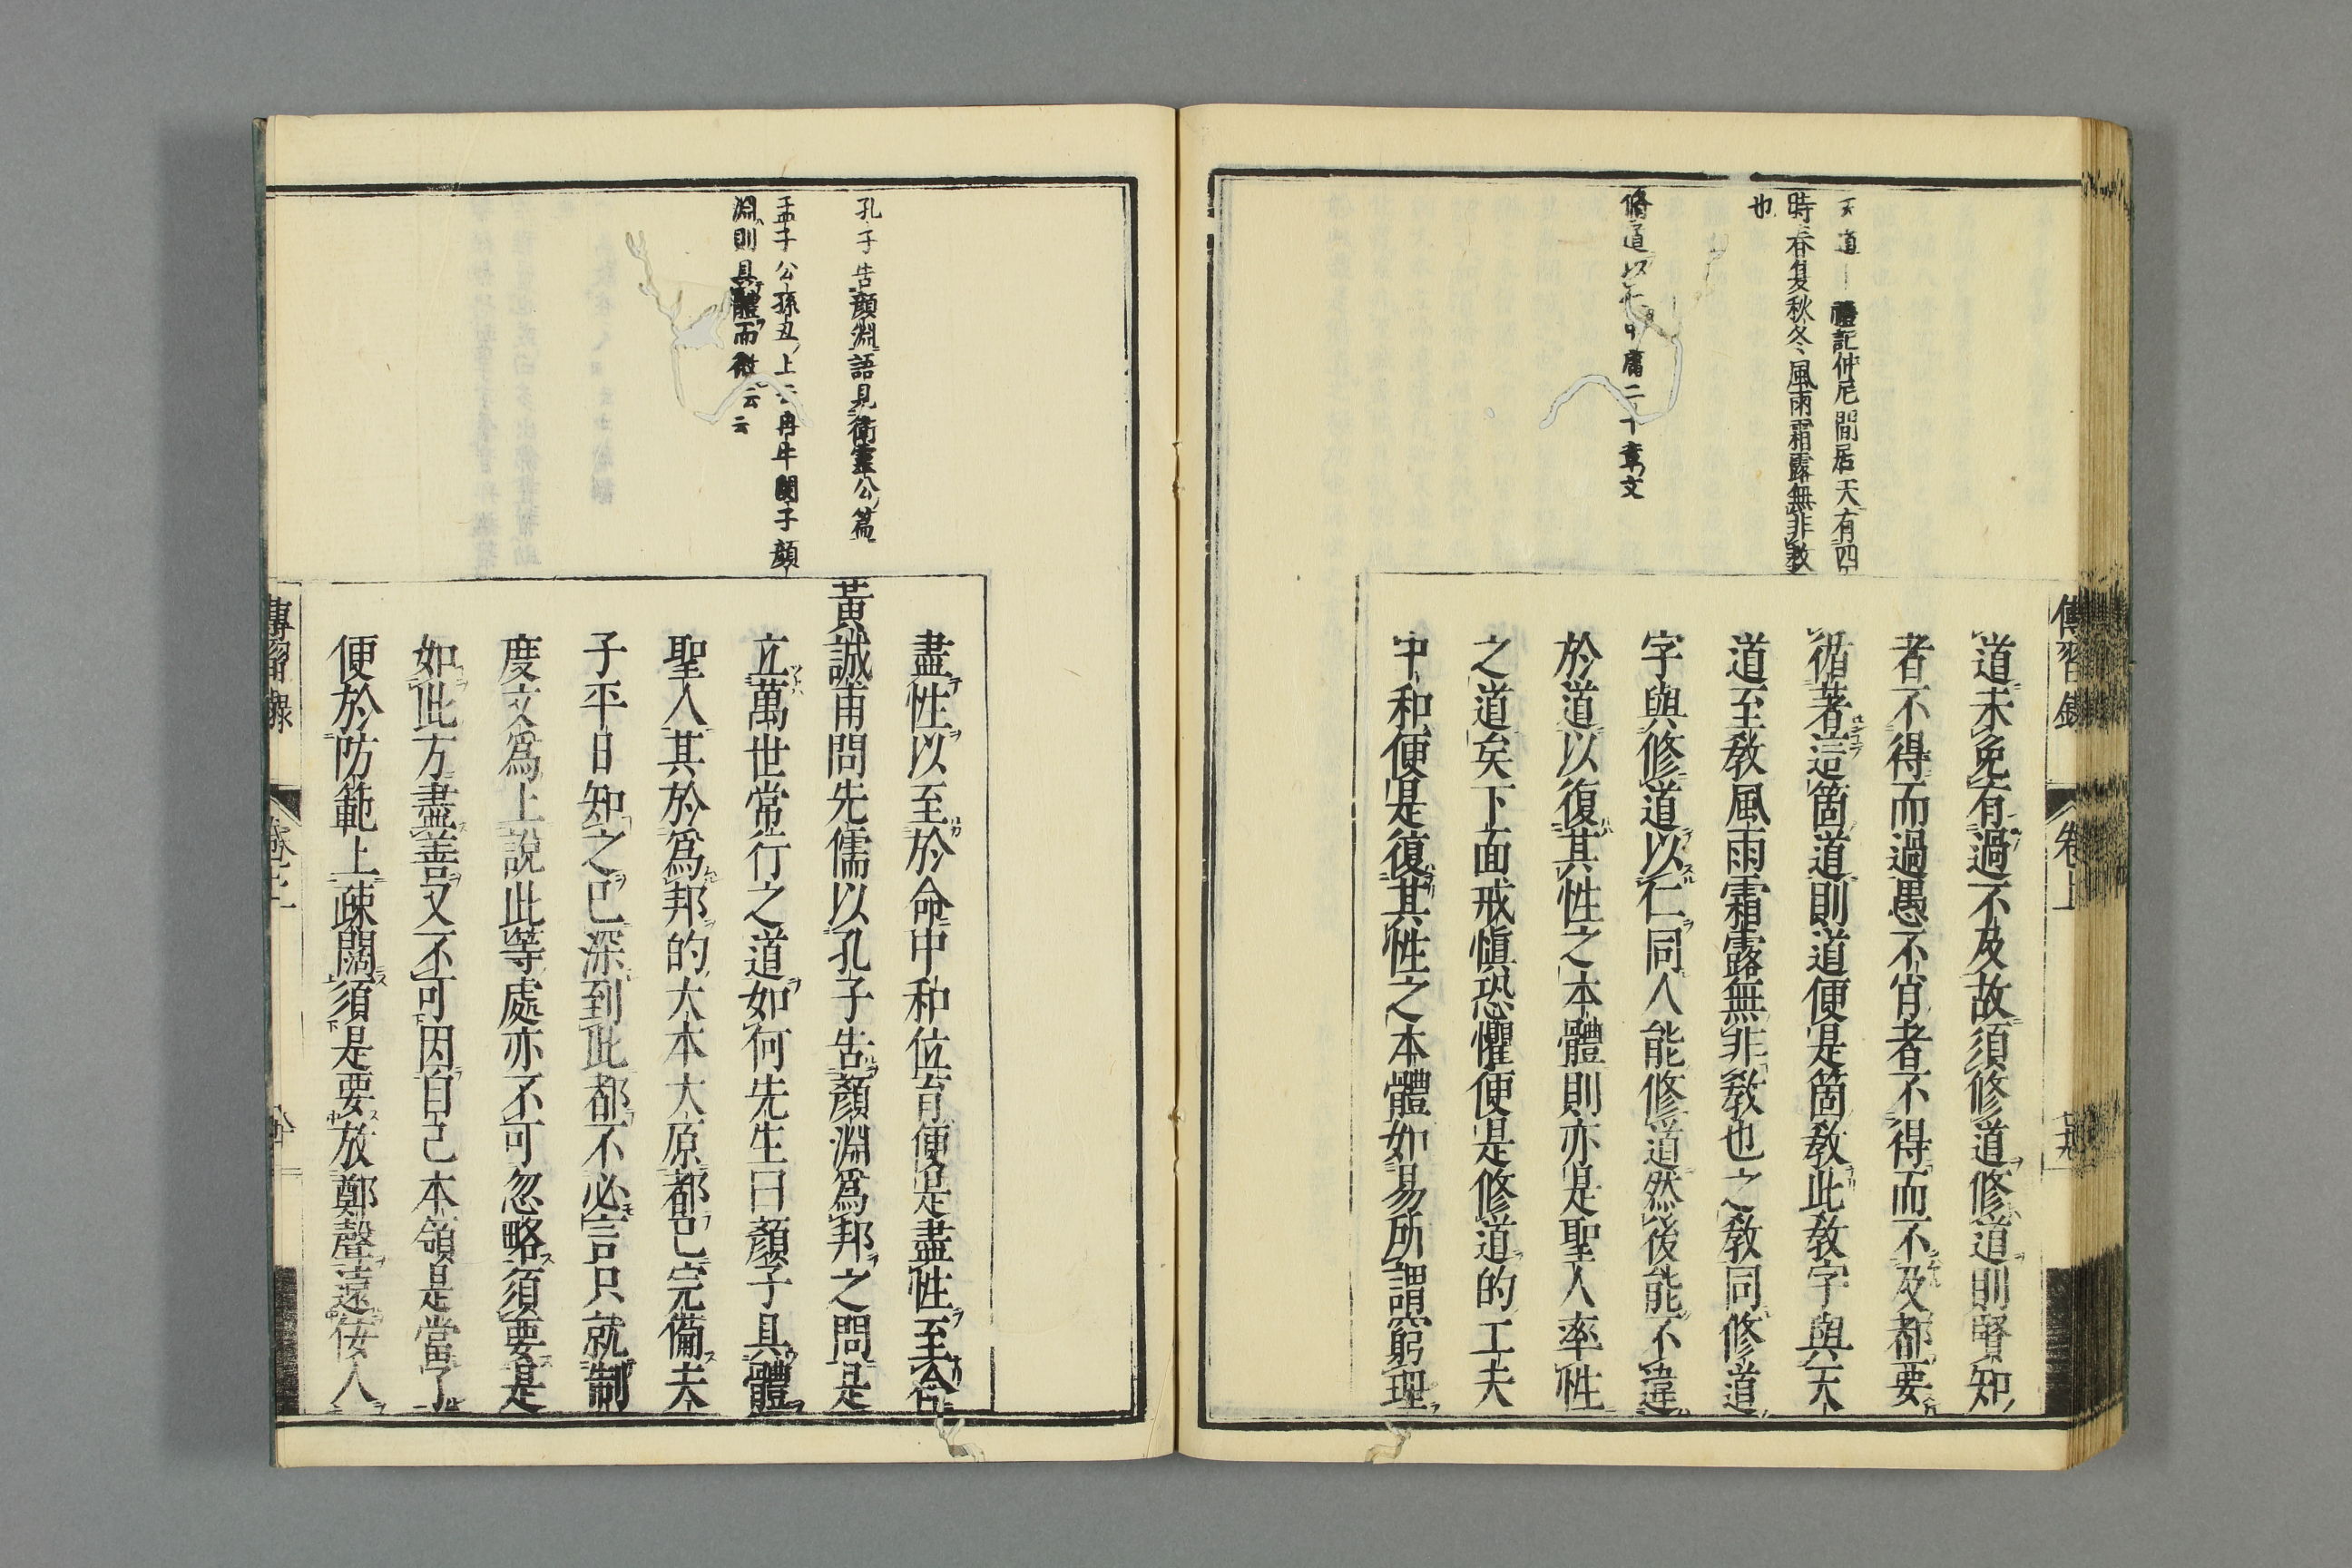 傳習錄
卷上
天道 禮記仲尼間居天有四
時春夏秋冬風雨霜露無非教
也
脩道以
庸二十章文
道未免有過不及故須修道修道則賢知
者不得而過愚不肖者不得而不及都要
循著這箇道則道便是箇教此教字與天
道至教風雨霜露無非教也之教同修道
字與修道以仁同人能修道然後能不違
於道以復其性之本體則亦是聖人率性
之道矣下面戒慎恐懼便是修道的工夫
中和便是復其性之本體如易所謂窮理
孔子告顏淵語見衛靈公篇
孟子公孫丑上云冉牛閔子顏
淵則具體而微云云
盡性以至於命中和位育便是盡性至命
黃誠甫問先儒以孔子告顏淵爲邦之問是
立萬世常行之道如何先生曰顏子具體
聖人其於爲邦的大本大原都已完備夫
子平日知之已深到此都不必言只就制
度文爲上說此等處亦不可忽略須要是
如此方盡善又不可因自己本領是當了
便於防範上疎闊須是要放鄭聲遠佞人
傳習錄
卷上